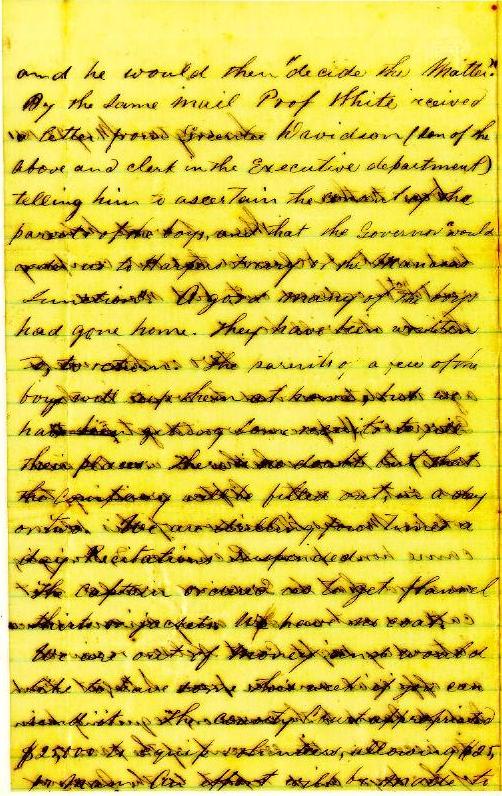 and he would then "decide the Matter"
By the same mail Prof White received
a letter from Greenlee Davidson (son of the
above and clerk in the Executive department)
telling him to ascertain the consent of the
parents of the boys, and that the Governor "would
order us to Harpers Ferry or the Manassas
Junction". A good many of the boys
had gone home. They have been written
to, to return. The parents of a few of the
boys will keep them at home, but we
have been getting some recruits to fill
their places. There is no doubt but that
the company will be filled out, in a day
or two. We are drilling four times a
day. Recitations suspended.
The captain ordered us to get flannel
shirts or jackets. We have no coats.
We are out of money and would
like to have some this week if you can
send it. The County Court appropriated
$25000 to equip volunteers, allowing $25
per man. An effort will be made to